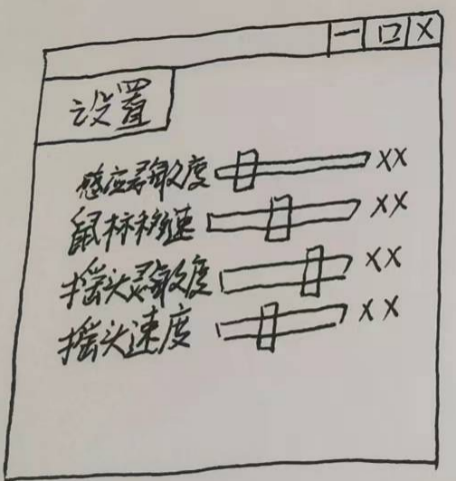 设置
感应灵敏度 XX
鼠标移速 XX
摇头灵敏度 XX
摇头速度 XX